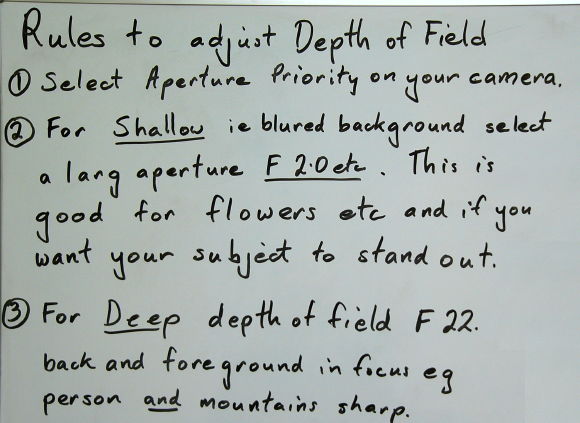 Rules to adjust Depth of Field
① Select Aperture Priority on your camera.
② For Shallow ie blured background select
a larg aperture F 2.0 etc. This is
good for flowers etc and if you
want your subject to stand out.
③ For Deep depth of field F 22.
back and foreground in focus eg
person and mountains sharp.